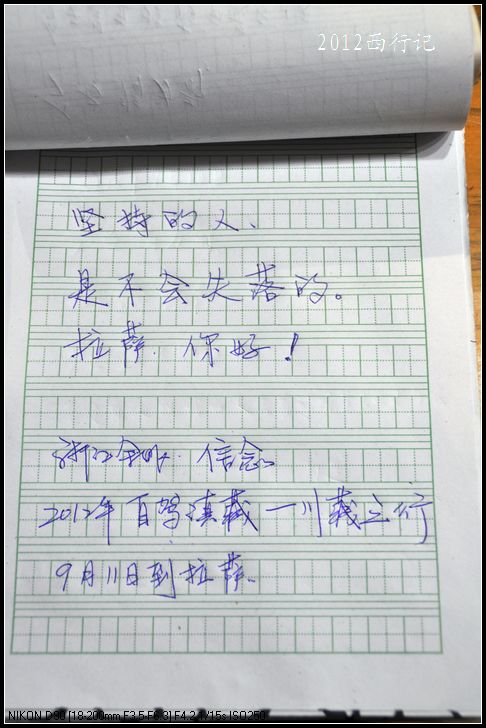 2012西行记
坚持的人、
是不会失落的。
拉萨.你好！
浙江 信念。
2012年自驾滇藏—川藏之行
9月11日到拉萨.
NIKON D90 [18-200mm F3.5-F6.3] F4.2 1/15s ISO250